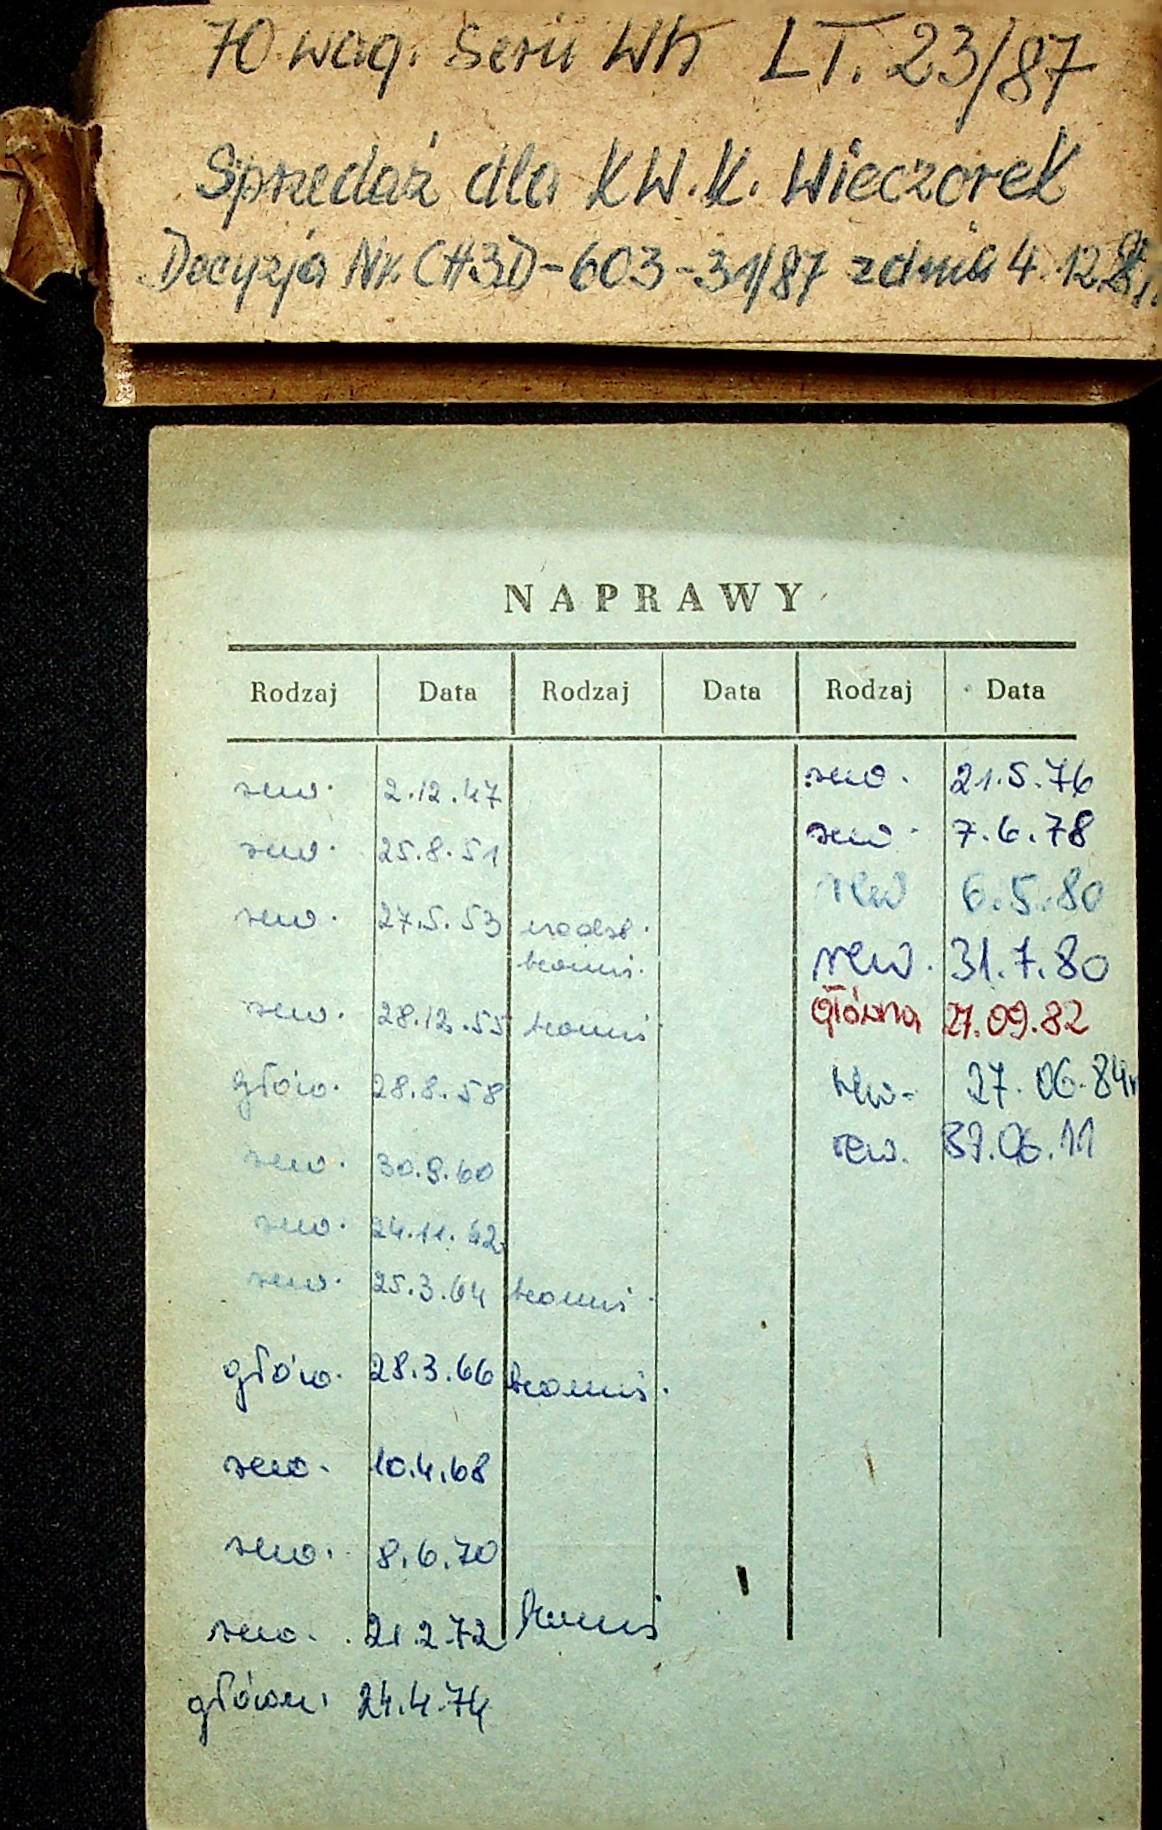 70 wag. Serii Wh LT. 23/87
Sprzedaż dla KW.K. Wieczorek
Decyzja Nr. CH3D-603-31/87 z dnia 4.12.
NAPRAWY
Rodzaj Data Rodzaj Data Rodzaj Data
rew. 2.12.47 rew. 21.5.76
rew. 25.8.51 rew. 7.6.78
rew 6.5.80
rew. 27.5.53
komis. rew. 31.7.80
rew. 28.12.55 komis Główna 27.09.82
głów. 28.8.58 rew. 27.06.84r
rew. 30.9.60 rew. .06.11
rew. 24.11.62
rew. 25.3.64 komis.
głów. 28.3.66 komis.
rew. 10.4.68
rew. 8.6.70
rew. 21.2.72 komis
główn. 24.4.74